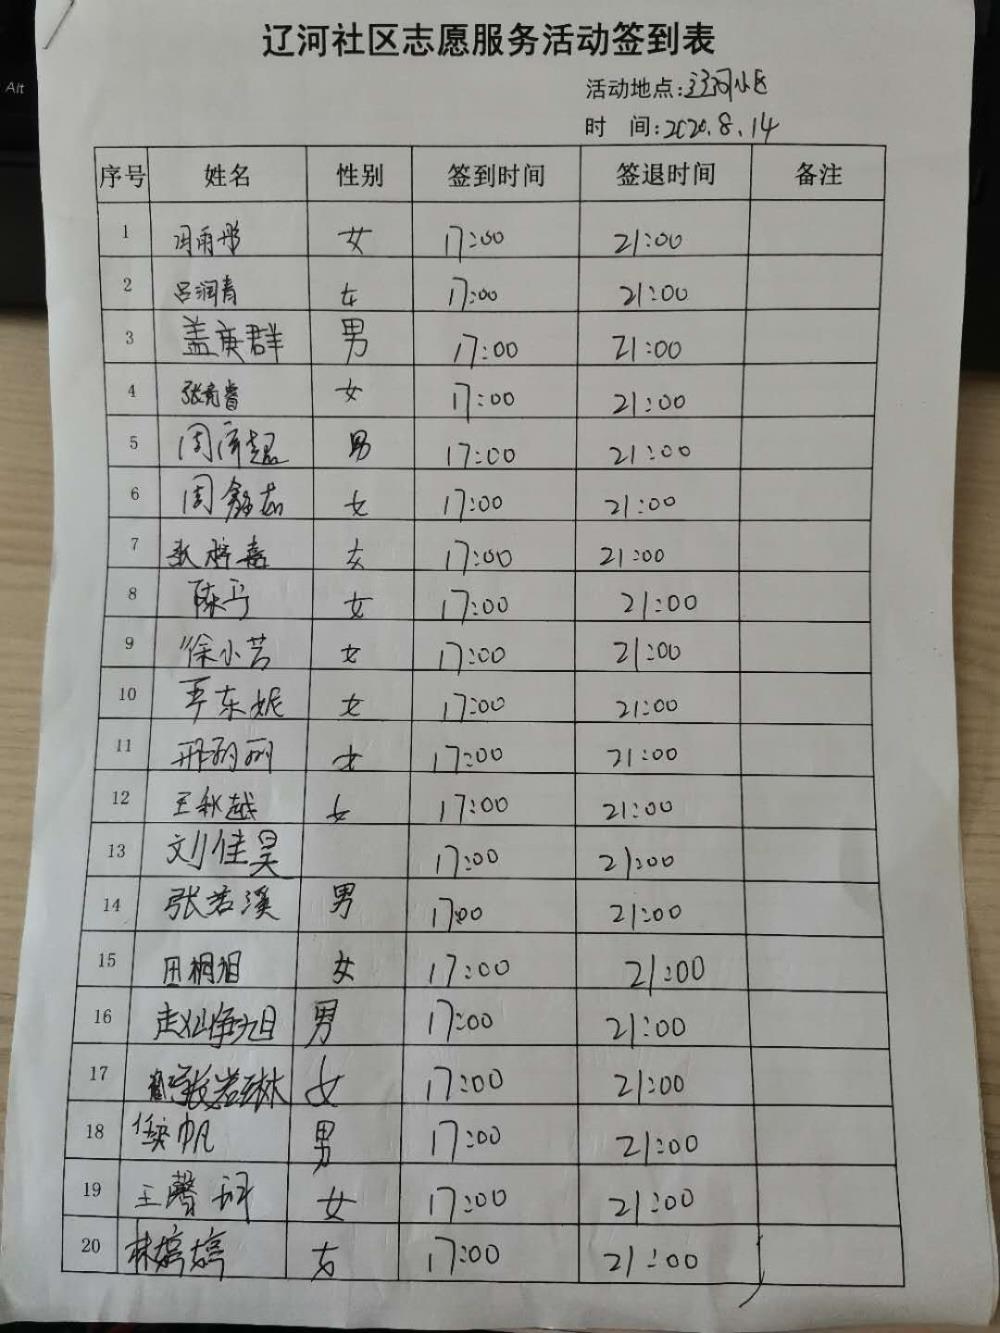 Alt
辽河社区志愿服务活动签到表
活动地点:辽河小区
时 间:2020.8.14
序号 姓名 性别 签到时间 签退时间 备注
1 冯雨彤 女 17:00 21:00
2 吕润青 女 17:00 21:00
3 盖庚群 男 17:00 21:00
4 女 17:00 21:00
5 男 17:00 21:00
6 女 17:00 21:00
7 女 17:00 21:00
8 女 17:00 21:00
9 徐小芸 女 17:00 21:00
10 女 17:00 21:00
11 女 17:00 21:00
12 王秋越 女 17:00 21:00
13 刘佳昊 17:00 21:00
14 张若溪 男 17:00 21:00
15 女 17:00 21:00
16 男 17:00 21:00
17 张若琳 女 17:00 21:00
18 男 17:00 21:00
19 女 17:00 21:00
20 林婷婷 女 17:00 21:00